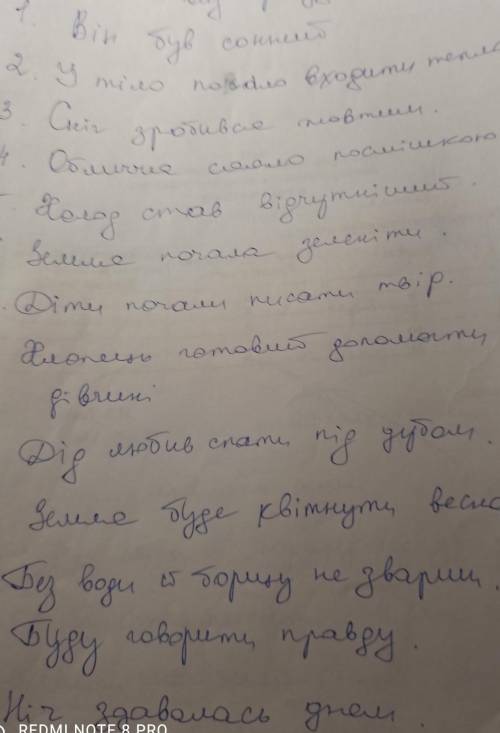 1. Він був сонний
2. У тіло почало входити тепло
3. Сніг зробився жовтим.
4. Обличчя сяяло посмішкою
Холод став відчутніший.
Земля почала зеленіти.
Діти почали писати твір.
Хлопець готовий допомогти
дівчині
Дід любив спати під дубом.
Земля буде квітнути весно
Без води й борщу не звариш.
Буду говорити правду.
Ніч здавалась днем.
REDMI NOTE 8 PRO